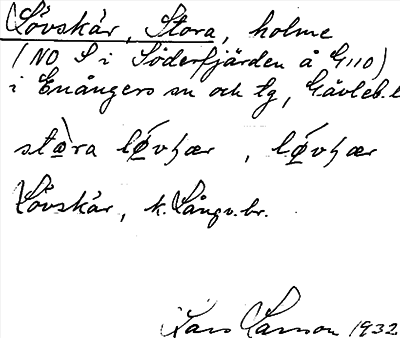 Lövskär, Stora, holme
(NO S i Söderfjärden å G110)
i Enångers sn och tg, Gävleb. l
stɷ̀ra lǿvʃær , lǿvʃær
Lövskär, k. Långv. br.
Lars Larsson 1932